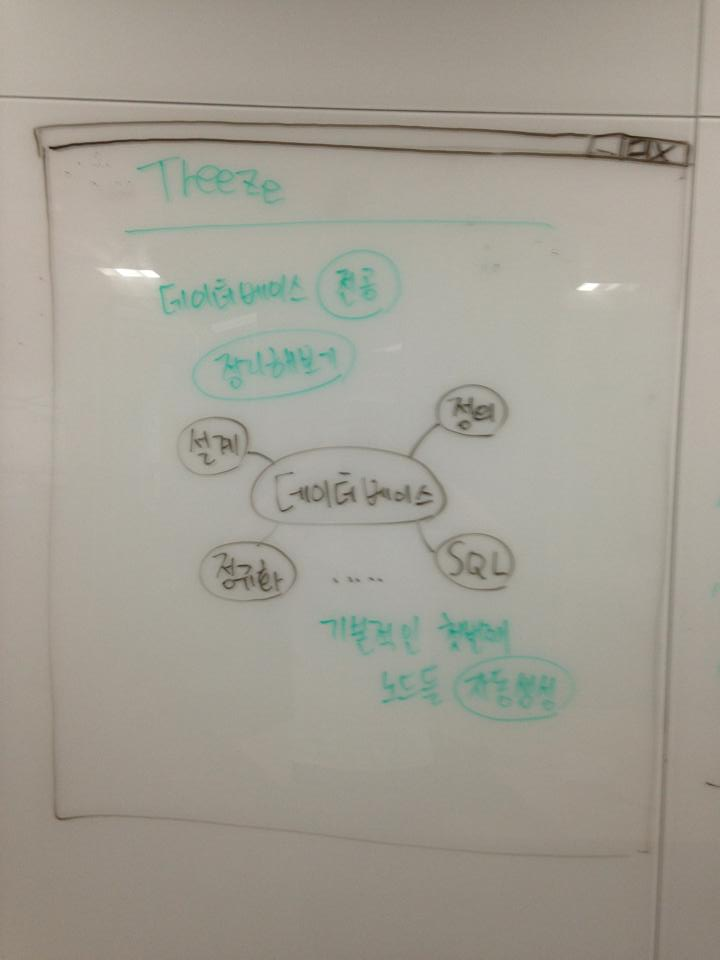 Treeze
데이터베이스 전공
정리해보기
설계
정의
데이터베이스
정규화
.....
SQL
기본적인 첫번째
노드들 자동생성